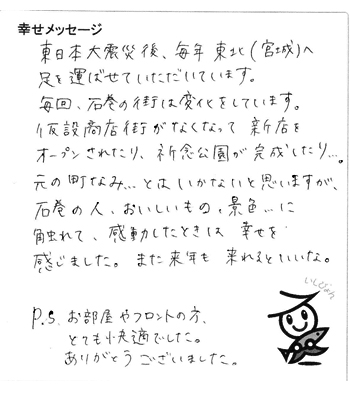 幸せメッセージ
東日本大震災後、毎年東北(宮城)へ
足を運ばせていただいています。
毎回、石巻の街は変化をしています。
仮設商店街がなくなって新店を
オープンされたり、祈念公園が完成したり…。
元の町なみ…とはいかないと思いますが、
石巻の人、おいしいもの、景色…に
触れて、感動したときは幸せを
感じました。また来年も来れるといいな。
いしぴょん
P.S. お部屋やフロントの方、
とても快適でした。
ありがとうございました。